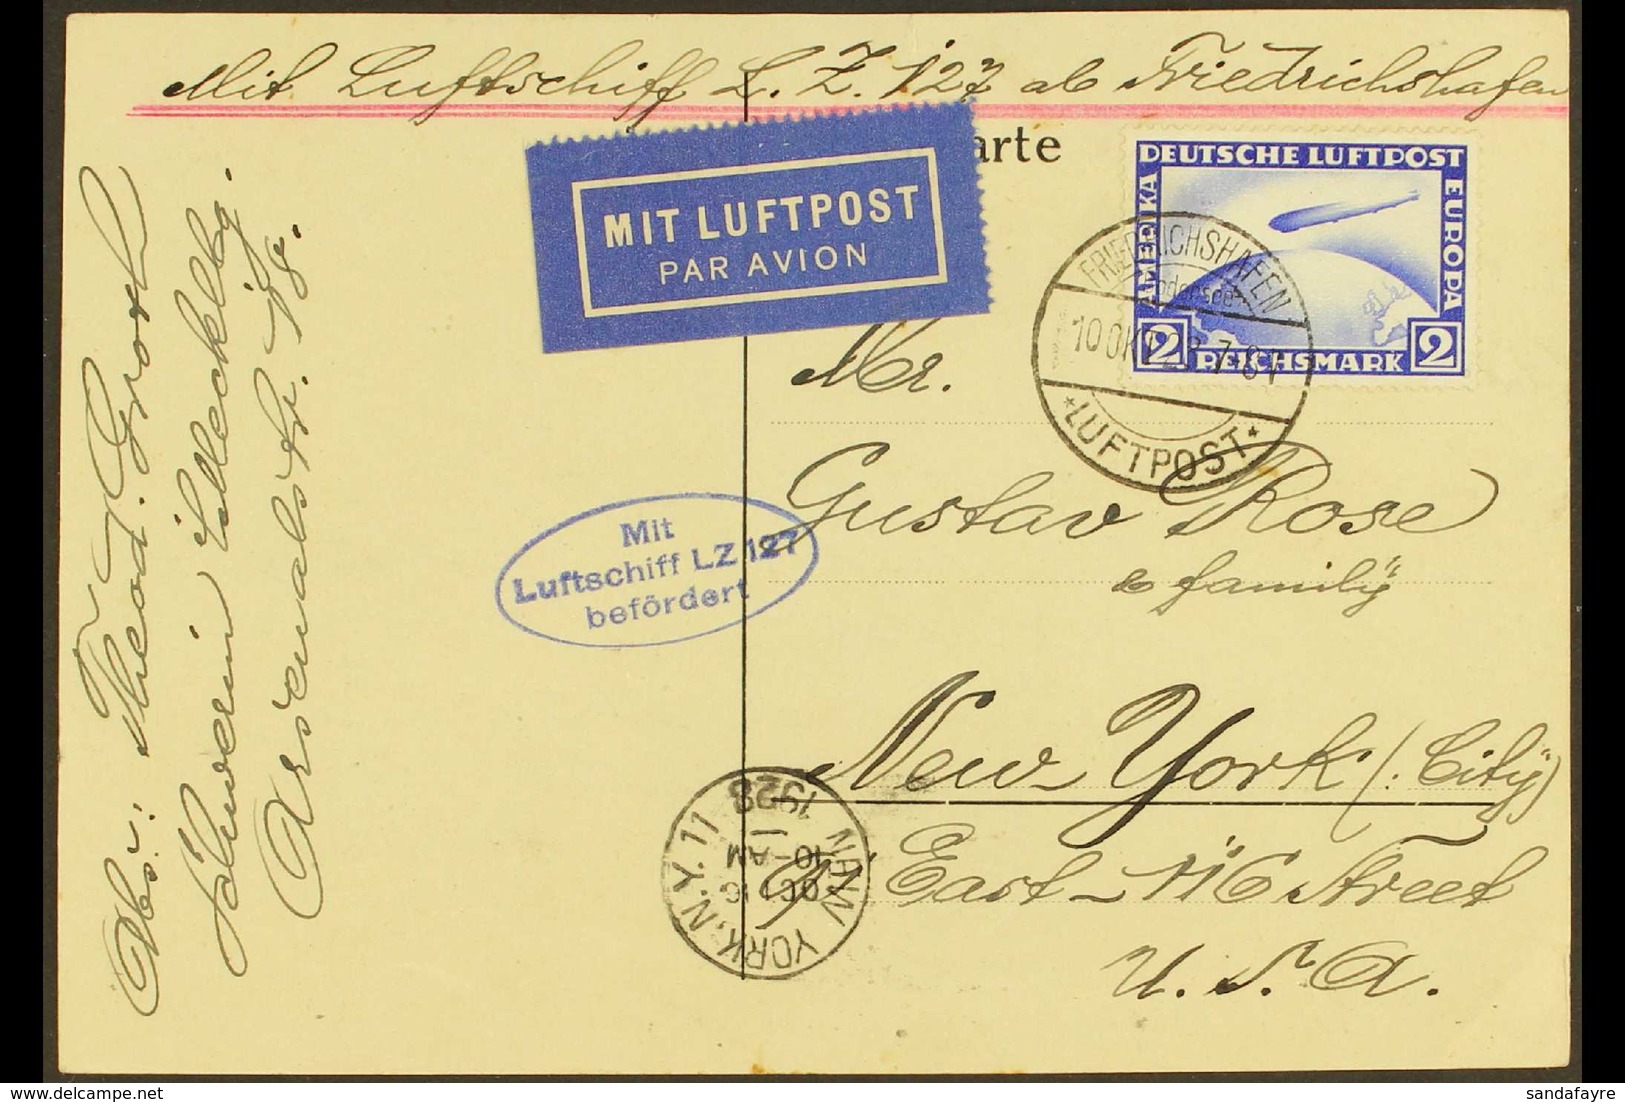 Mit Luftschiff L.Z.127 ab Friedrichshafen
arte
MIT LUFTPOST
PAR AVION
DEUTSCHE LUFTPOST
AMERIKA
EUROPA
2 REICHSMARK 2
FRIEDRICHSHAFEN
Bodensee
10 OKT 28 7-8 V
* LUFTPOST *
Mr.
Gustav Rose
& family
New York (: City :)
East 116 Street
U.S.A.
Mit
Luftschiff LZ 127
befördert
NEW YORK, N.Y. 11
OCT 16
10-AM
1928
Abs.: Theod. Grosch
Schwerin
Arsenalstr. 18.
sandafayre